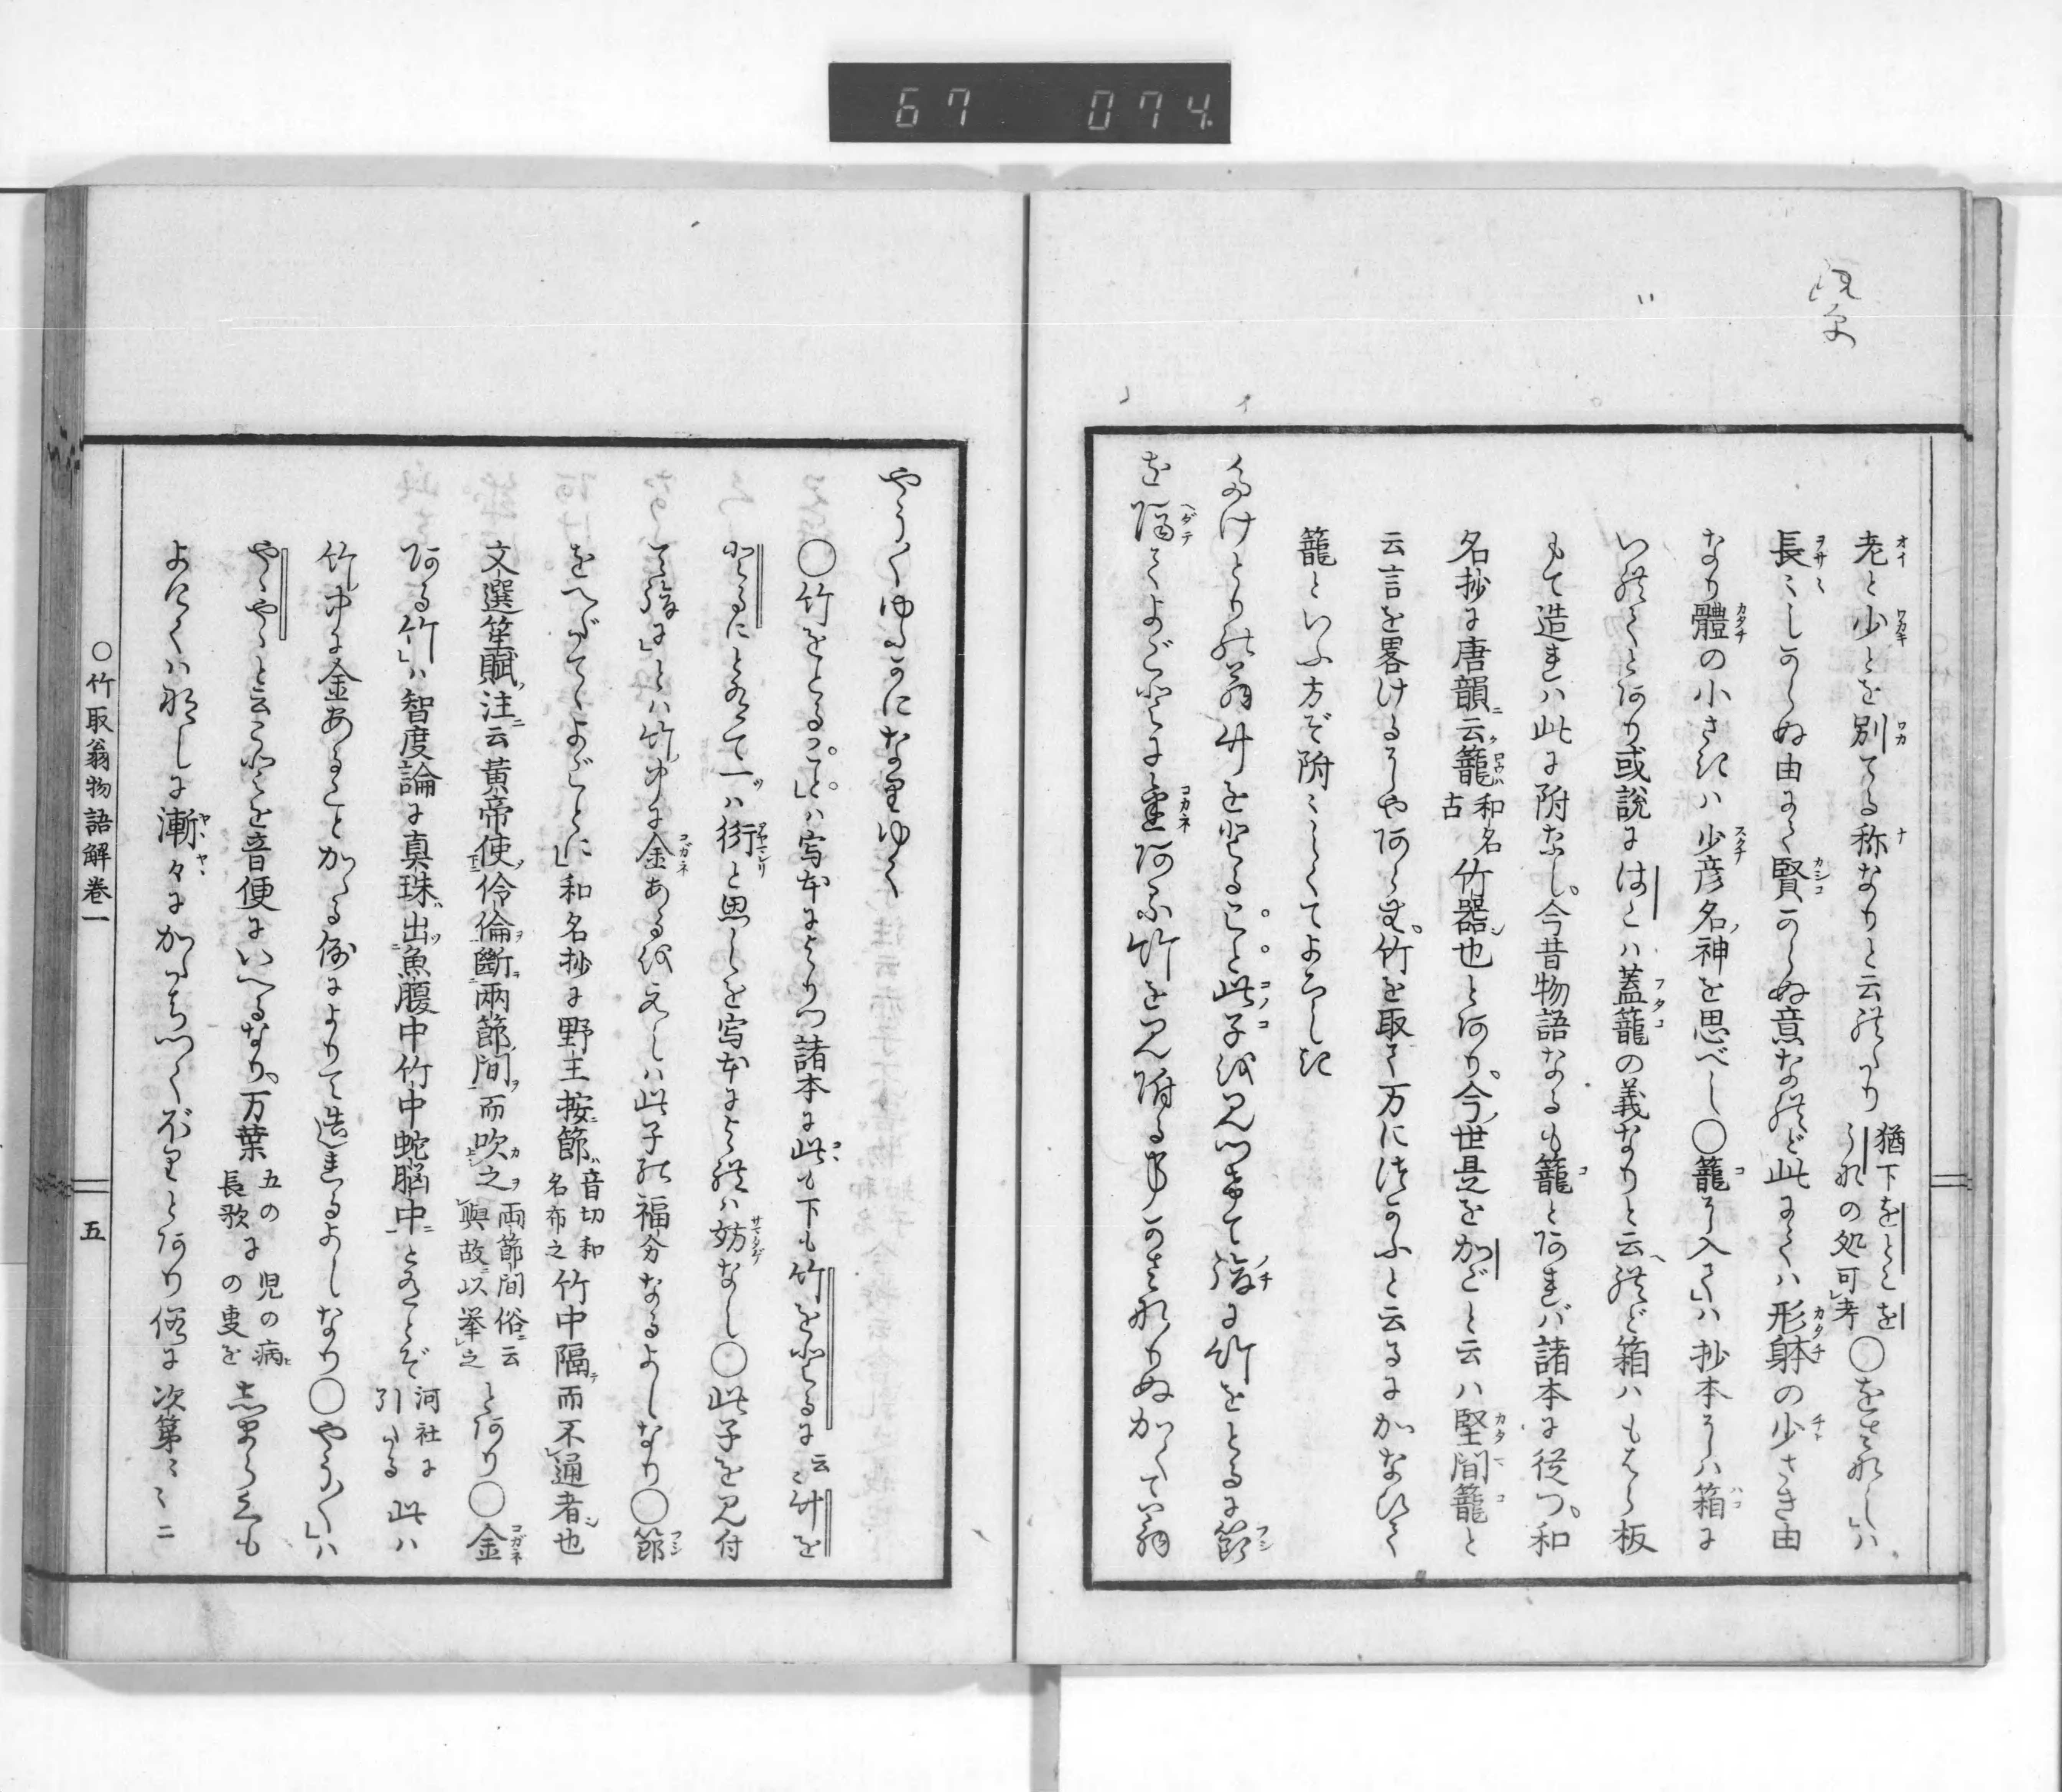 67 074
老と少とを別てる称なりと云れたり 猶下をとこを うなの処可考 ○をさなしハ
長々しからぬ由にて賢からぬ意なれど此にてハ形身の少さき由
なり體の小さきハ少彦名神を思べし○籠に入てハ抄本にハ箱に
いれてとあり或説にはこハ蓋籠の義なりと云れど箱ハもはら板
もて造れハ此に附なし今昔物語なるも籠とあれバ諸本に従つ和
名抄に唐韻云籠 和名 古 竹器也とあり今世是をかごと云ハ堅間籠と
云言を畧けるにやあらむ竹を取て万につかふと云るにかなひて
籠といふ方ぞ附々しくてよろしき
たけとりの翁竹をとること此子を見つけて後に竹をとるに節
を隔てよごとに金ある竹を見附る事かさなりぬかくて翁
やう〱ゆたかになりゆく
○竹をとることハ写本によりつ諸本に此も下も竹をとるにと云竹を
とるにとありて一ハ衍と思しを写本によれハ妨なし○此子を見付
て後にとハ竹中に金あるを云しハ此子の福分なるよしなり○節
をへだてゝよごとに和名抄に野王按節 音切和 名布之 竹中隔而不通者也
文選笙賦注云黄帝使伶倫斷兩節間而吹之 両節間俗云 與故以挙之 とあり○金
ある竹ハ智度論に真珠出魚腹中竹中蛇脳中とあるとぞ 河社に 引たる 此ハ
竹中に金あることかゝる例によりて造れるよしなり○やう〱ハ
やゝやゝと云ことを音便にいへるなり万葉 五の 長歌に 児の病 の事を 志まらくも
よけくハなしに漸々にかたちつくほりとあり俗に次第々々ニ
○竹取翁物語解巻一
五